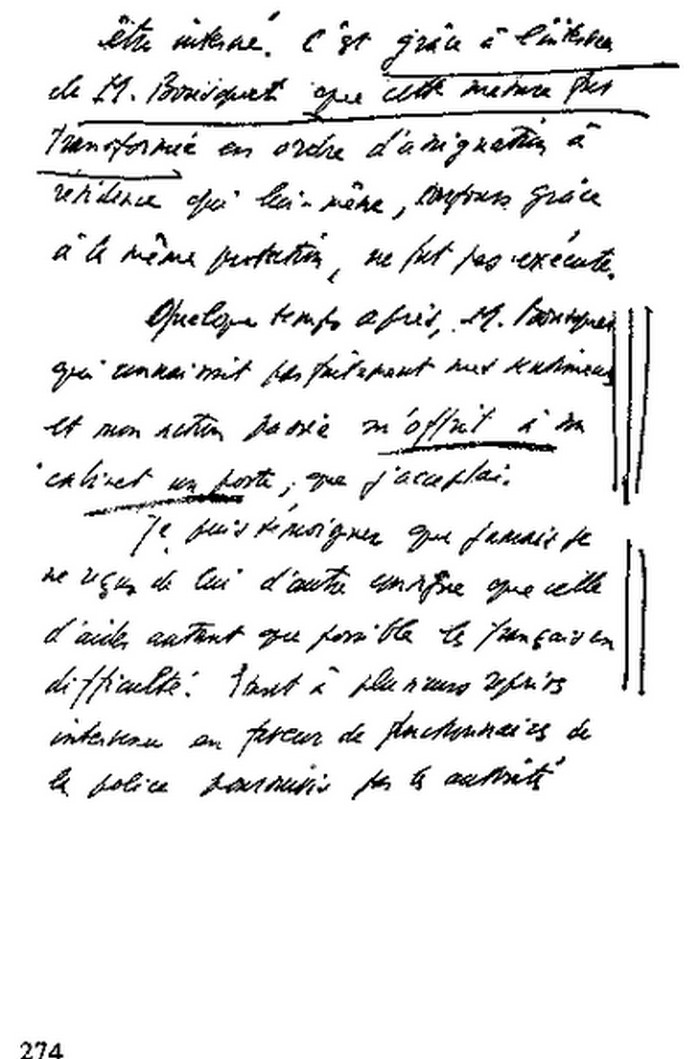 être interné. C'est grâce à l'interven
de M. Bousquet que cette mesure fut
transformée en ordre d'assignation à
résidence qui lui-même, toujours grâce
à la même protection, ne fut pas exécuté.
Quelque temps après, M. Bousquet
qui connaissait parfaitement mes sentiments
et mon action passée m'offrit à son
cabinet un poste, que j'acceptai.
Je puis témoigner que jamais je
ne reçus de lui d'autre consigne que celle
d'aider autant que possible les français en
difficulté. à plusieurs reprises
intervenu en faveur de fonctionnaires de
la police poursuivis par les autorités
274